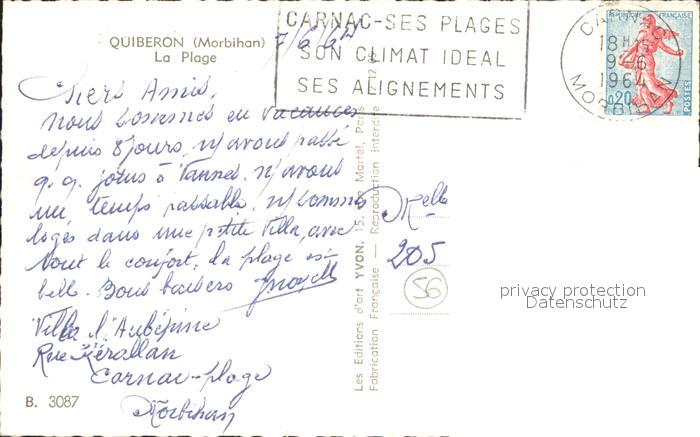 QUIBERON (Morbihan)
La Plage
7/6/64
CARNAC-SES PLAGES
SON CLIMAT IDEAL
SES ALIGNEMENTS
18 H
9-6
1964
MORBIHAN
RÉPUBLIQUE FRANÇAISE
0,20
POSTES
Chers Amis,
Nous sommes en vacances
depuis 8 jours, n/ avons passé
q.q. jours à Vannes. n/ avons
un temps passable. n/ sommes
logés dans une petite Villa, avec
tout le confort. la plage est
belle. Bons baisers
Villa l'Aubépine
Rue Kerallan
Carnac-plage
Morbihan
B. 3087
Les Editions d'art YVON, 15, rue Martel, Paris
Fabrication Française — Reproduction interdite
205
56
privacy protection
Datenschutz